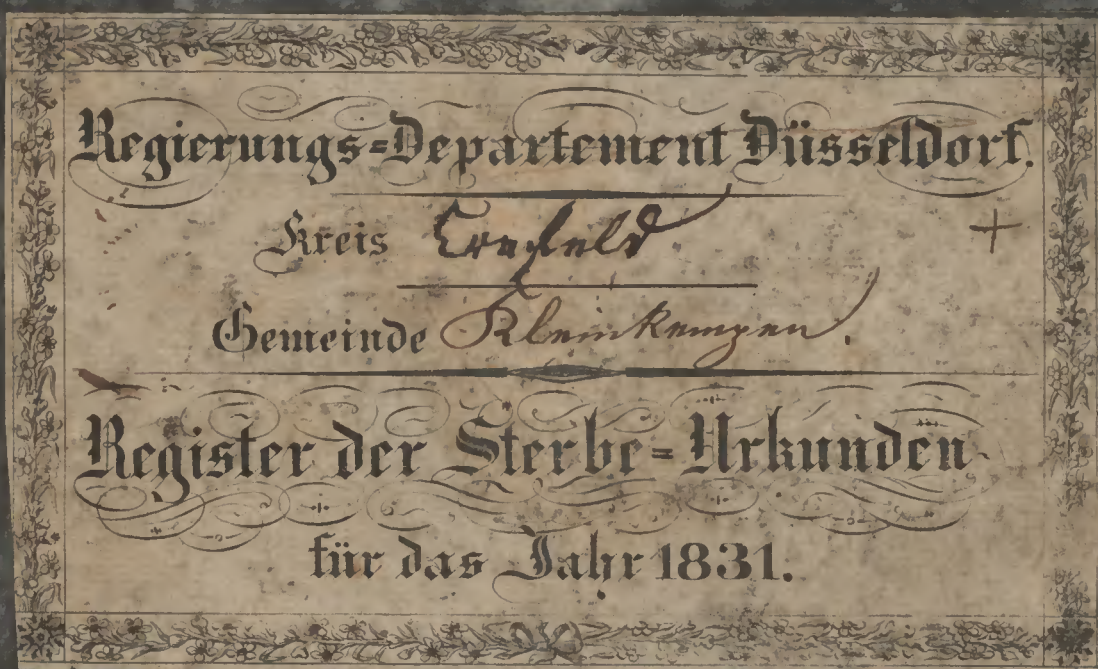 Regierungs=Departement Düsseldorf.
Kreis Crefeld
+
Gemeinde Kleinkempen.
Register der Sterbe=Urkunden
für das Jahr 1831.